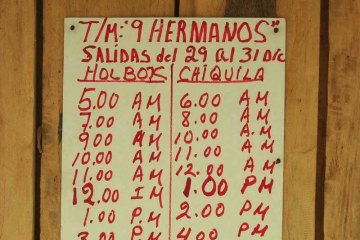 T/M: "9 HERMANOS"
SALIDAS del 29 al 31 Dic
HOLBOX CHIQUILA
5.00 AM 6.00 AM
7.00 AM 8.00 AM
9.00 AM 10.00 AM
10.00 AM 11.00 AM
11.00 AM 12.00 AM
12.00 IM 1.00 PM
1.00 PM 2.00 PM
3.00 PM 4.00 PM